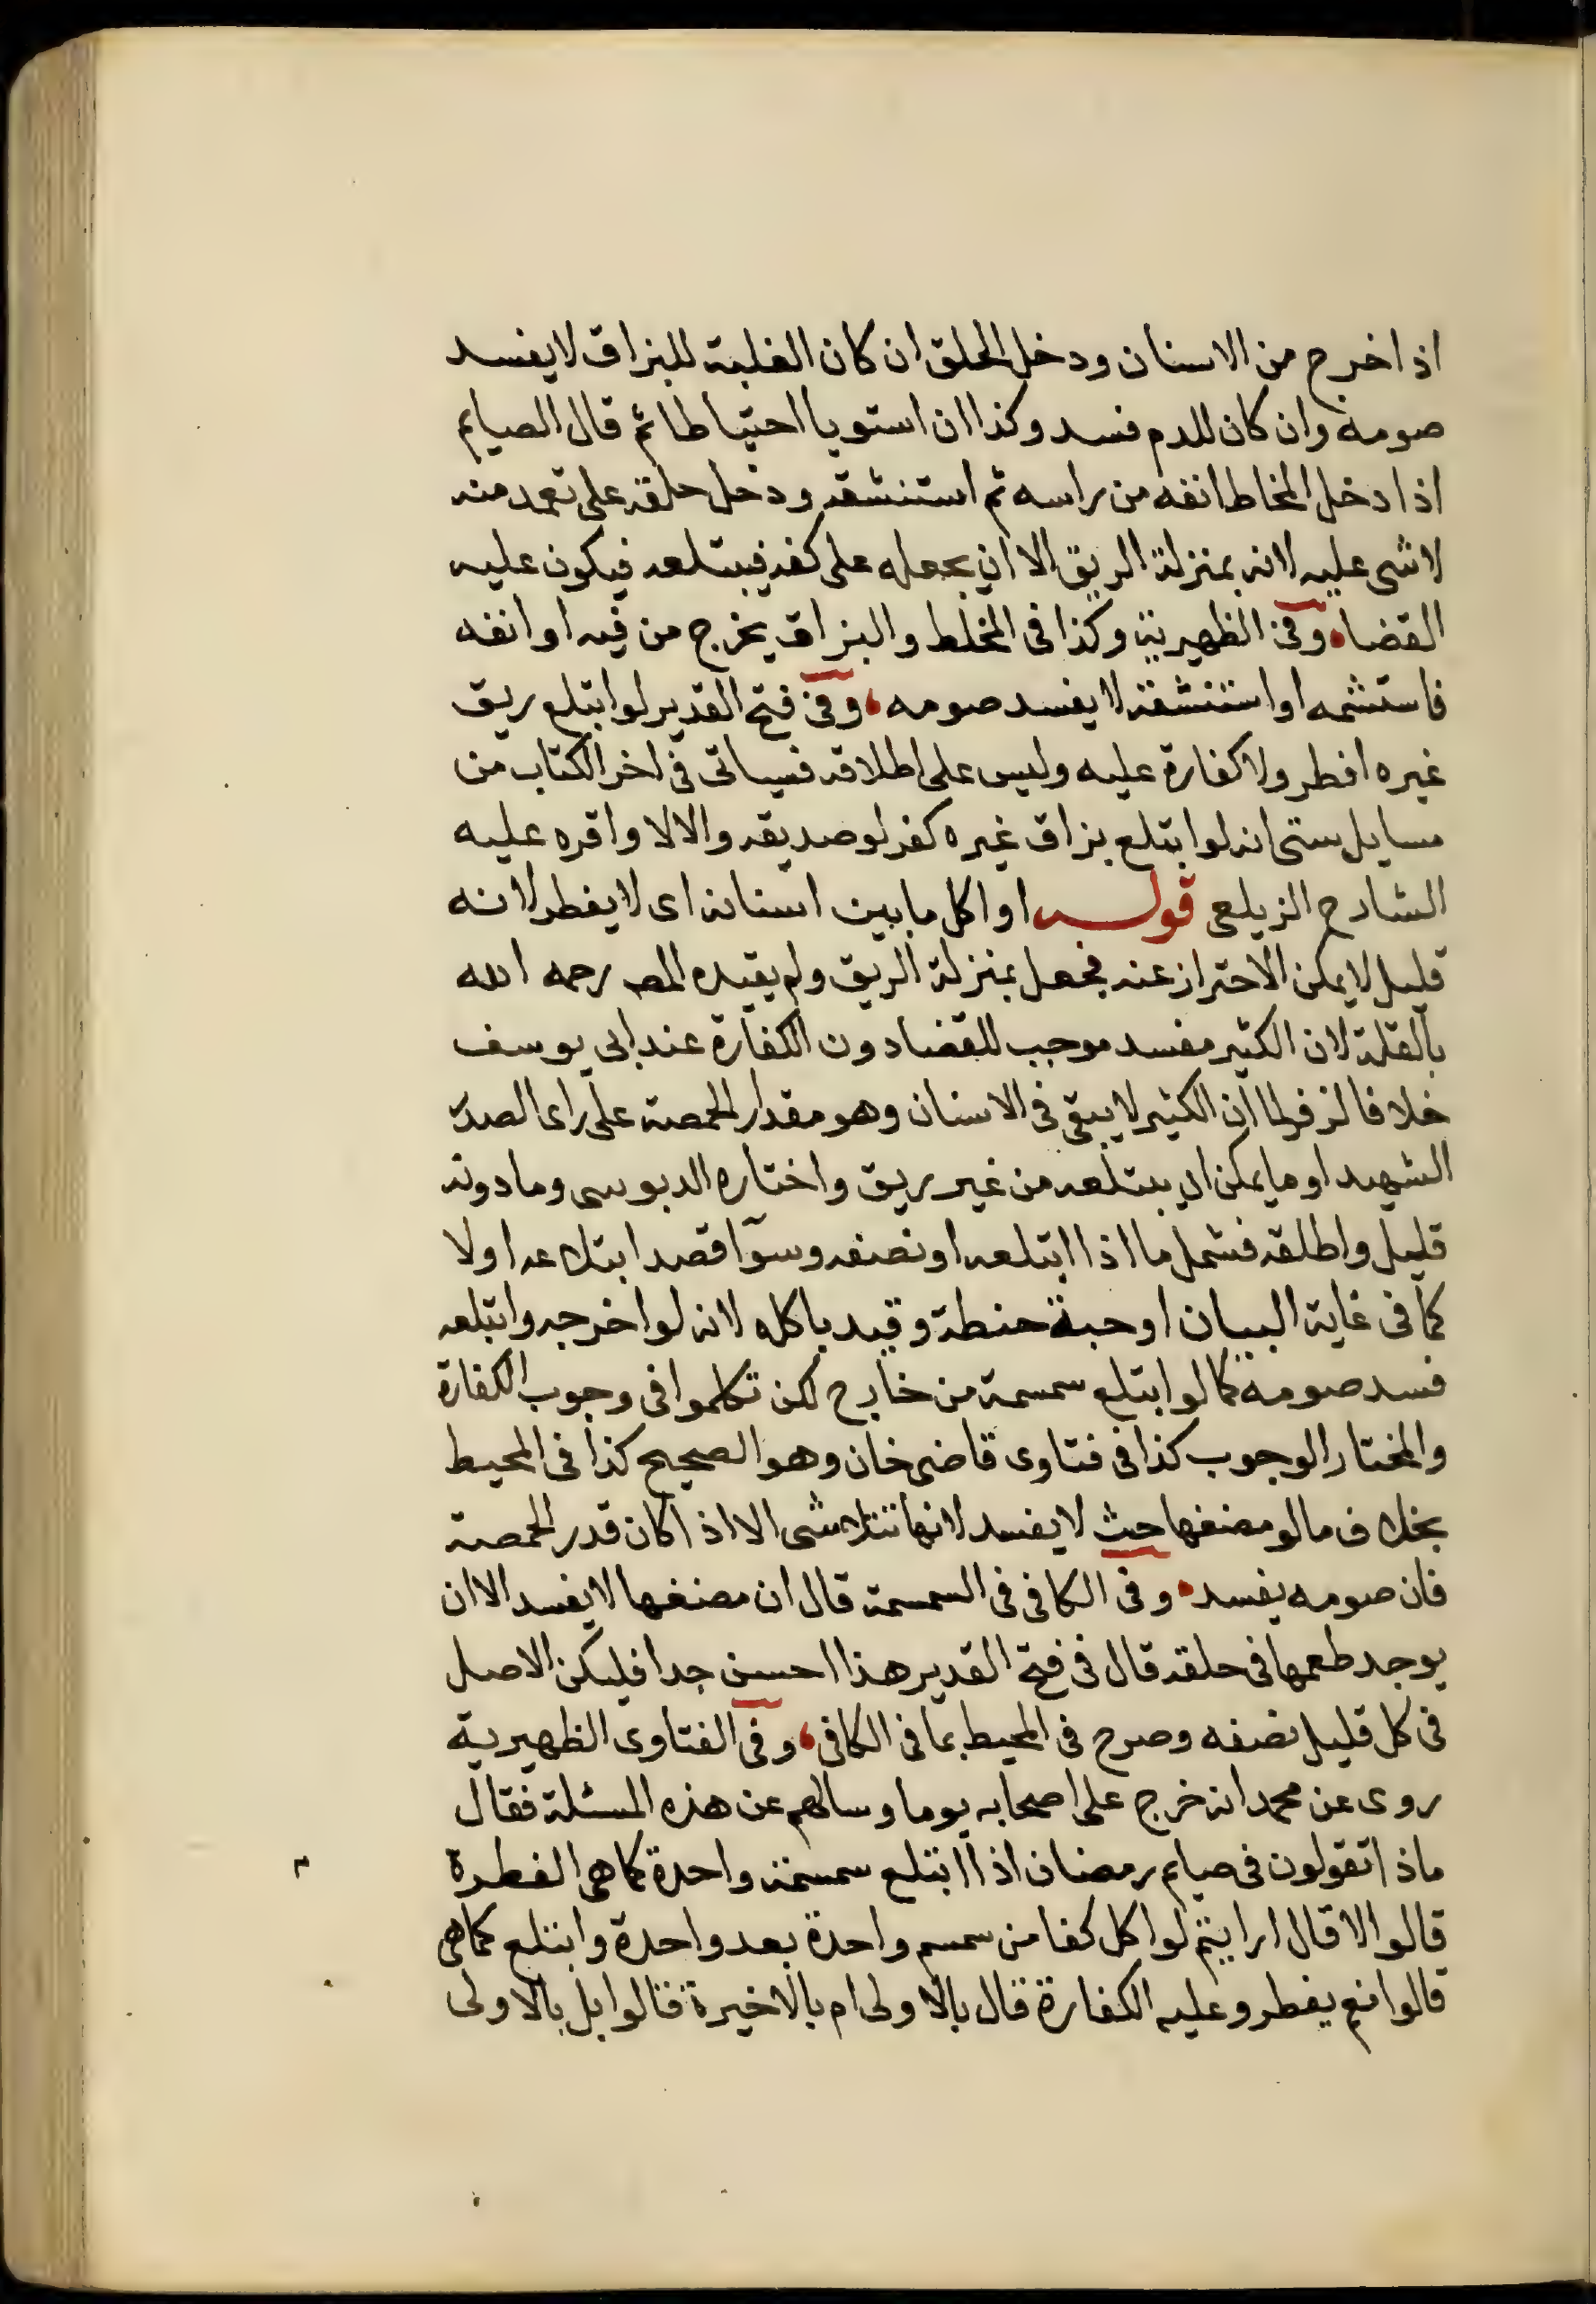 اذا خرج من الاسنان ودخل الحلق ان كان الغلبة للبزاق لا يفسد
صومه وان كان للدم فسد وكذا ان استويا احتياطا ثم قال الصايم
اذا دخل المخاط انفه من راسه ثم استنشقه ودخل حلقه على تعمد منه
لا شى عليه لانه بمنزلة الريق الا ان يجعله على كفه فيبتلعه فيكون عليه
القضاء وفى الظهيرية وكذا فى المخلط والبزاق يخرج من فيه او انفه
فاستشمه او استنشقه لا يفسد صومه، وفى فتح القدير لو ابتلع ريق
غيره افطر ولا كفارة عليه وليس على اطلاقه فسياتى فى اخر الكتاب من
مسايل ستى انه لو ابتلع بزاق غيره كفر لو صديقه والا لا واقره عليه
الشارح الزيلعى قوله او اكل ما بين اسنانه اى لا يفطر لانه
قليل لا يمكن الاحتراز عنه فجعل بمنزلة الريق ولم يقيده المص رحمه الله
بالقلة لان الكثير مفسد موجب للقضا دون الكفارة عند ابى يوسف
خلافا لزفر لما ان الكثير لا يبقى فى الاسنان وهو مقدار الحمصة على راى الصدر
الشهيد او ما يمكن ان يبتلعه من غير ريق واختاره الدبوسى وما دونه
قليل واطلقه فشمل ما اذا ابتلعه او نصفه وسوآ قصد ابتلاعه اولا
كما فى غاية البيان او حبة حنطة وقيد باكله لانه لو اخرجه وابتلعه
فسد صومه كما لو ابتلع سمسمة من خارج لكن تكلموا فى وجوب الكفارة
والمختار الوجوب كذا فى فتاوى قاضى خان وهو الصحيح كذا فى المحيط
بخلاف ما لو مضغها حيث لا يفسد لانها تتلاشى الا اذا كان قدر الحمصة
فان صومه يفسد. وفى الكافى فى السمسمة قال ان مضغها لا يفسد الا ان
يوجد طعمها فى حلقه قال فى فتح القدير هذا احسن جدا فليكن الاصل
فى كل قليل نصفه وصرح فى المحيط بما فى الكافى، وفى الفتاوى الظهيرية
روى عن محمد انه خرج على اصحابه يوما وسالهم عن هذه المسئلة فقال
ماذا تقولون فى صيام رمضان اذا ابتلع سمسمة واحدة كما هى الفطرة
قالوا لا قال ارايتم لو اكل كفا من سمسم واحدة بعد واحدة وابتلع كما هى
قالوا نعم يفطر وعليه الكفارة قال بالاولى ام بالاخيرة قالوا بل بالاولى